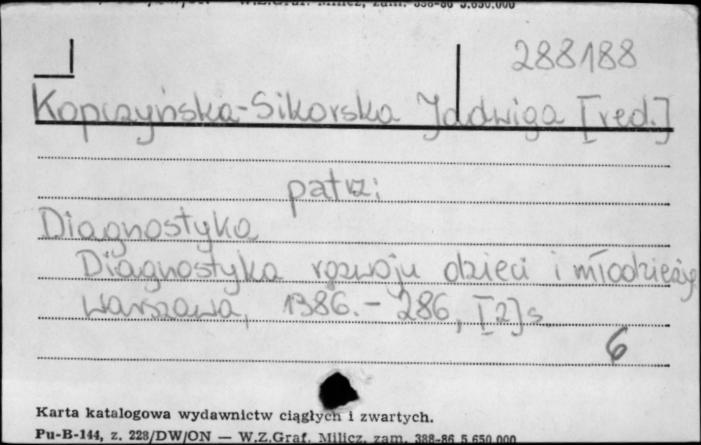 288188
Kopczyńska-Sikorska Jadwiga [red.]
patrz:
Diagnostyka
Diagnostyka rozwoju dzieci i młodzieży
Warszawa, 1986. - 286, [2] s
6
Karta katalogowa wydawnictw ciągłych i zwartych.
Pu-B-144, z. 228/DW/ON — W.Z.Graf. Milicz, zam. 388-86 5.650.000